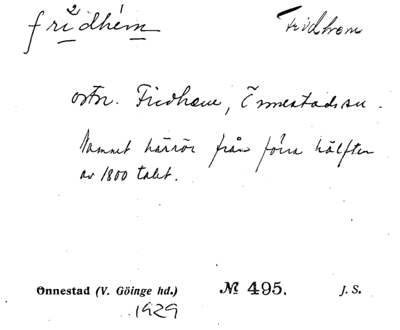 fridhém Fridhem
ostn. Fridhem, Önnestads sn.
Namnet härrör från förra hälften
av 1800 talet.
Onnestad (V. Göinge hd.) № 495. J. S.
1929